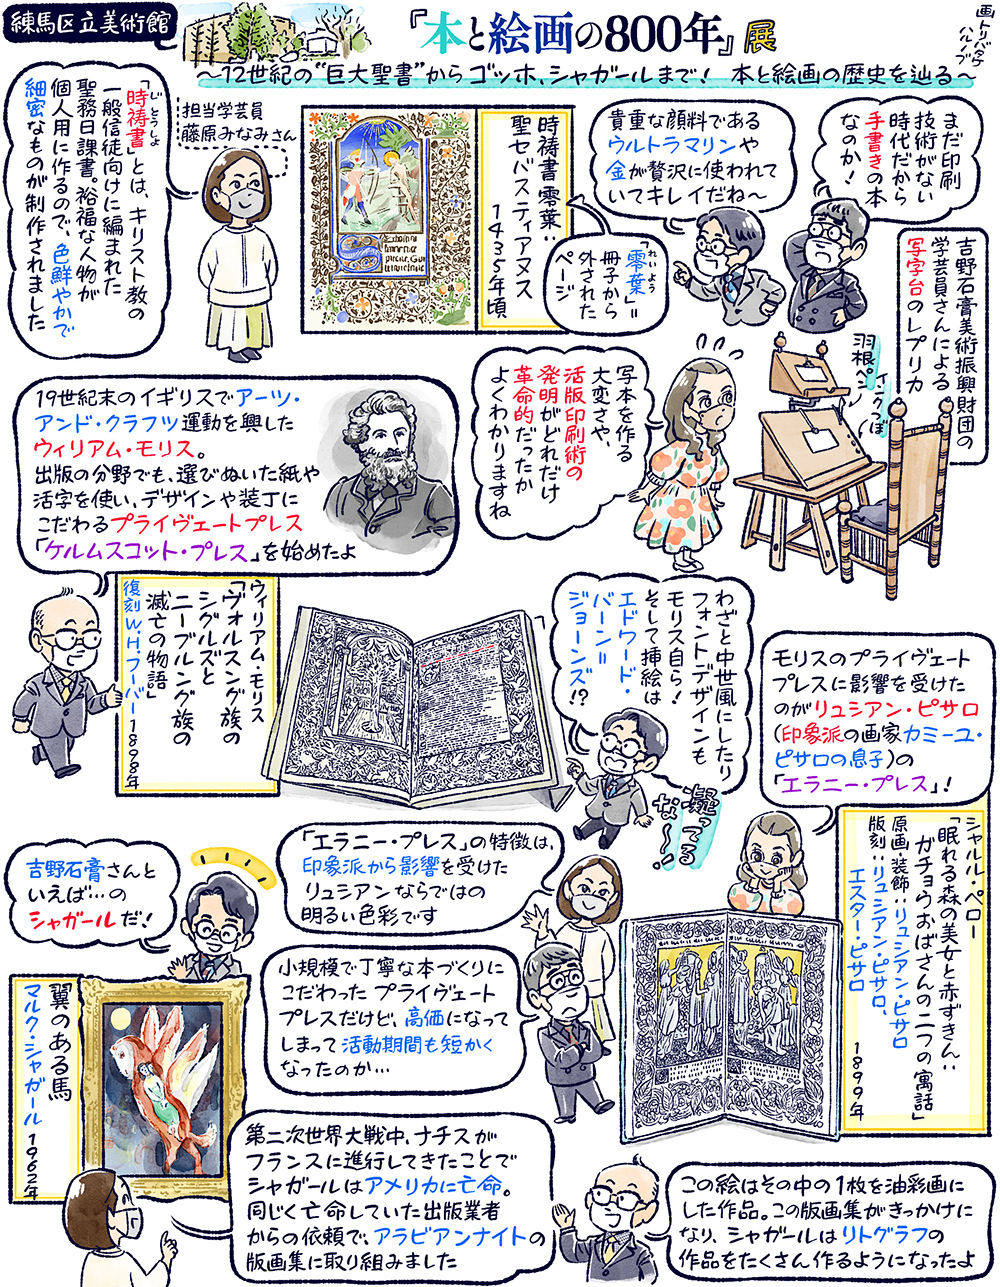 練馬区立美術館
『本と絵画の800年』展
画 トリバタケ
ハルノブ
〜12世紀の“巨大聖書”からゴッホ、シャガールまで! 本と絵画の歴史を辿る〜
まだ印刷
技術がない
時代だから
手書きの本
なのか!
貴重な顔料である
ウルトラマリンや
金が贅沢に使われて
いてキレイだね〜
時祷書零葉:
聖セバスティアヌス
1435年頃
「零葉」=
れいよう
冊子から
外された
ページ
担当学芸員
藤原みなみさん
「時祷書」とは、キリスト教の
じとうしょ
一般信徒向けに編まれた
聖務日課書。裕福な人物が
個人用に作るので、色鮮やかで
細密なものが制作されました
吉野石膏美術振興財団の
学芸員さんによる
写字台のレプリカ
インクつぼ
羽根ペン
写本を作る
大変さや、
活版印刷術の
発明がどれだけ
革命的だったか
よくわかりますね
19世紀末のイギリスでアーツ・
アンド・クラフツ運動を興した
ウィリアム・モリス。
出版の分野でも、選びぬいた紙や
活字を使い、デザインや装丁に
こだわるプライヴェートプレス
「ケルムスコット・プレス」を始めたよ
ウィリアム・モリス
「ヴォルスング族の
シグルズと
ニーブルング族の
滅亡の物語」
復刻W.H.フーバー 1898年
わざと中世風にしたり
フォントデザインも
モリス自ら!
そして挿絵は
エドワード・
バーン=
ジョーンズ!?
凝ってる
な〜!
モリスのプライヴェート
プレスに影響を受けた
のがリュシアン・ピサロ
(印象派の画家カミーユ・
ピサロの息子)の
「エラニー・プレス」!
シャルル・ペロー
「眠れる森の美女と赤ずきん:
ガチョウおばさんの二つの寓話」
原画・装飾:リュシアン・ピサロ
版刻:リュシアン・ピサロ、
エスター・ピサロ
1899年
「エラニー・プレス」の特徴は、
印象派から影響を受けた
リュシアンならではの
明るい色彩です
小規模で丁寧な本づくりに
こだわったプライヴェート
プレスだけど、高価になって
しまって活動期間も短かく
なったのか…
吉野石膏さんと
いえば…の
シャガールだ!
翼のある馬
マルク・シャガール 1962年
第二次世界大戦中、ナチスが
フランスに進行してきたことで
シャガールはアメリカに亡命。
同じく亡命していた出版業者
からの依頼で、アラビアンナイトの
版画集に取り組みました
この絵はその中の1枚を油彩画に
した作品。この版画集がきっかけに
なり、シャガールはリトグラフの
作品をたくさん作るようになったよ